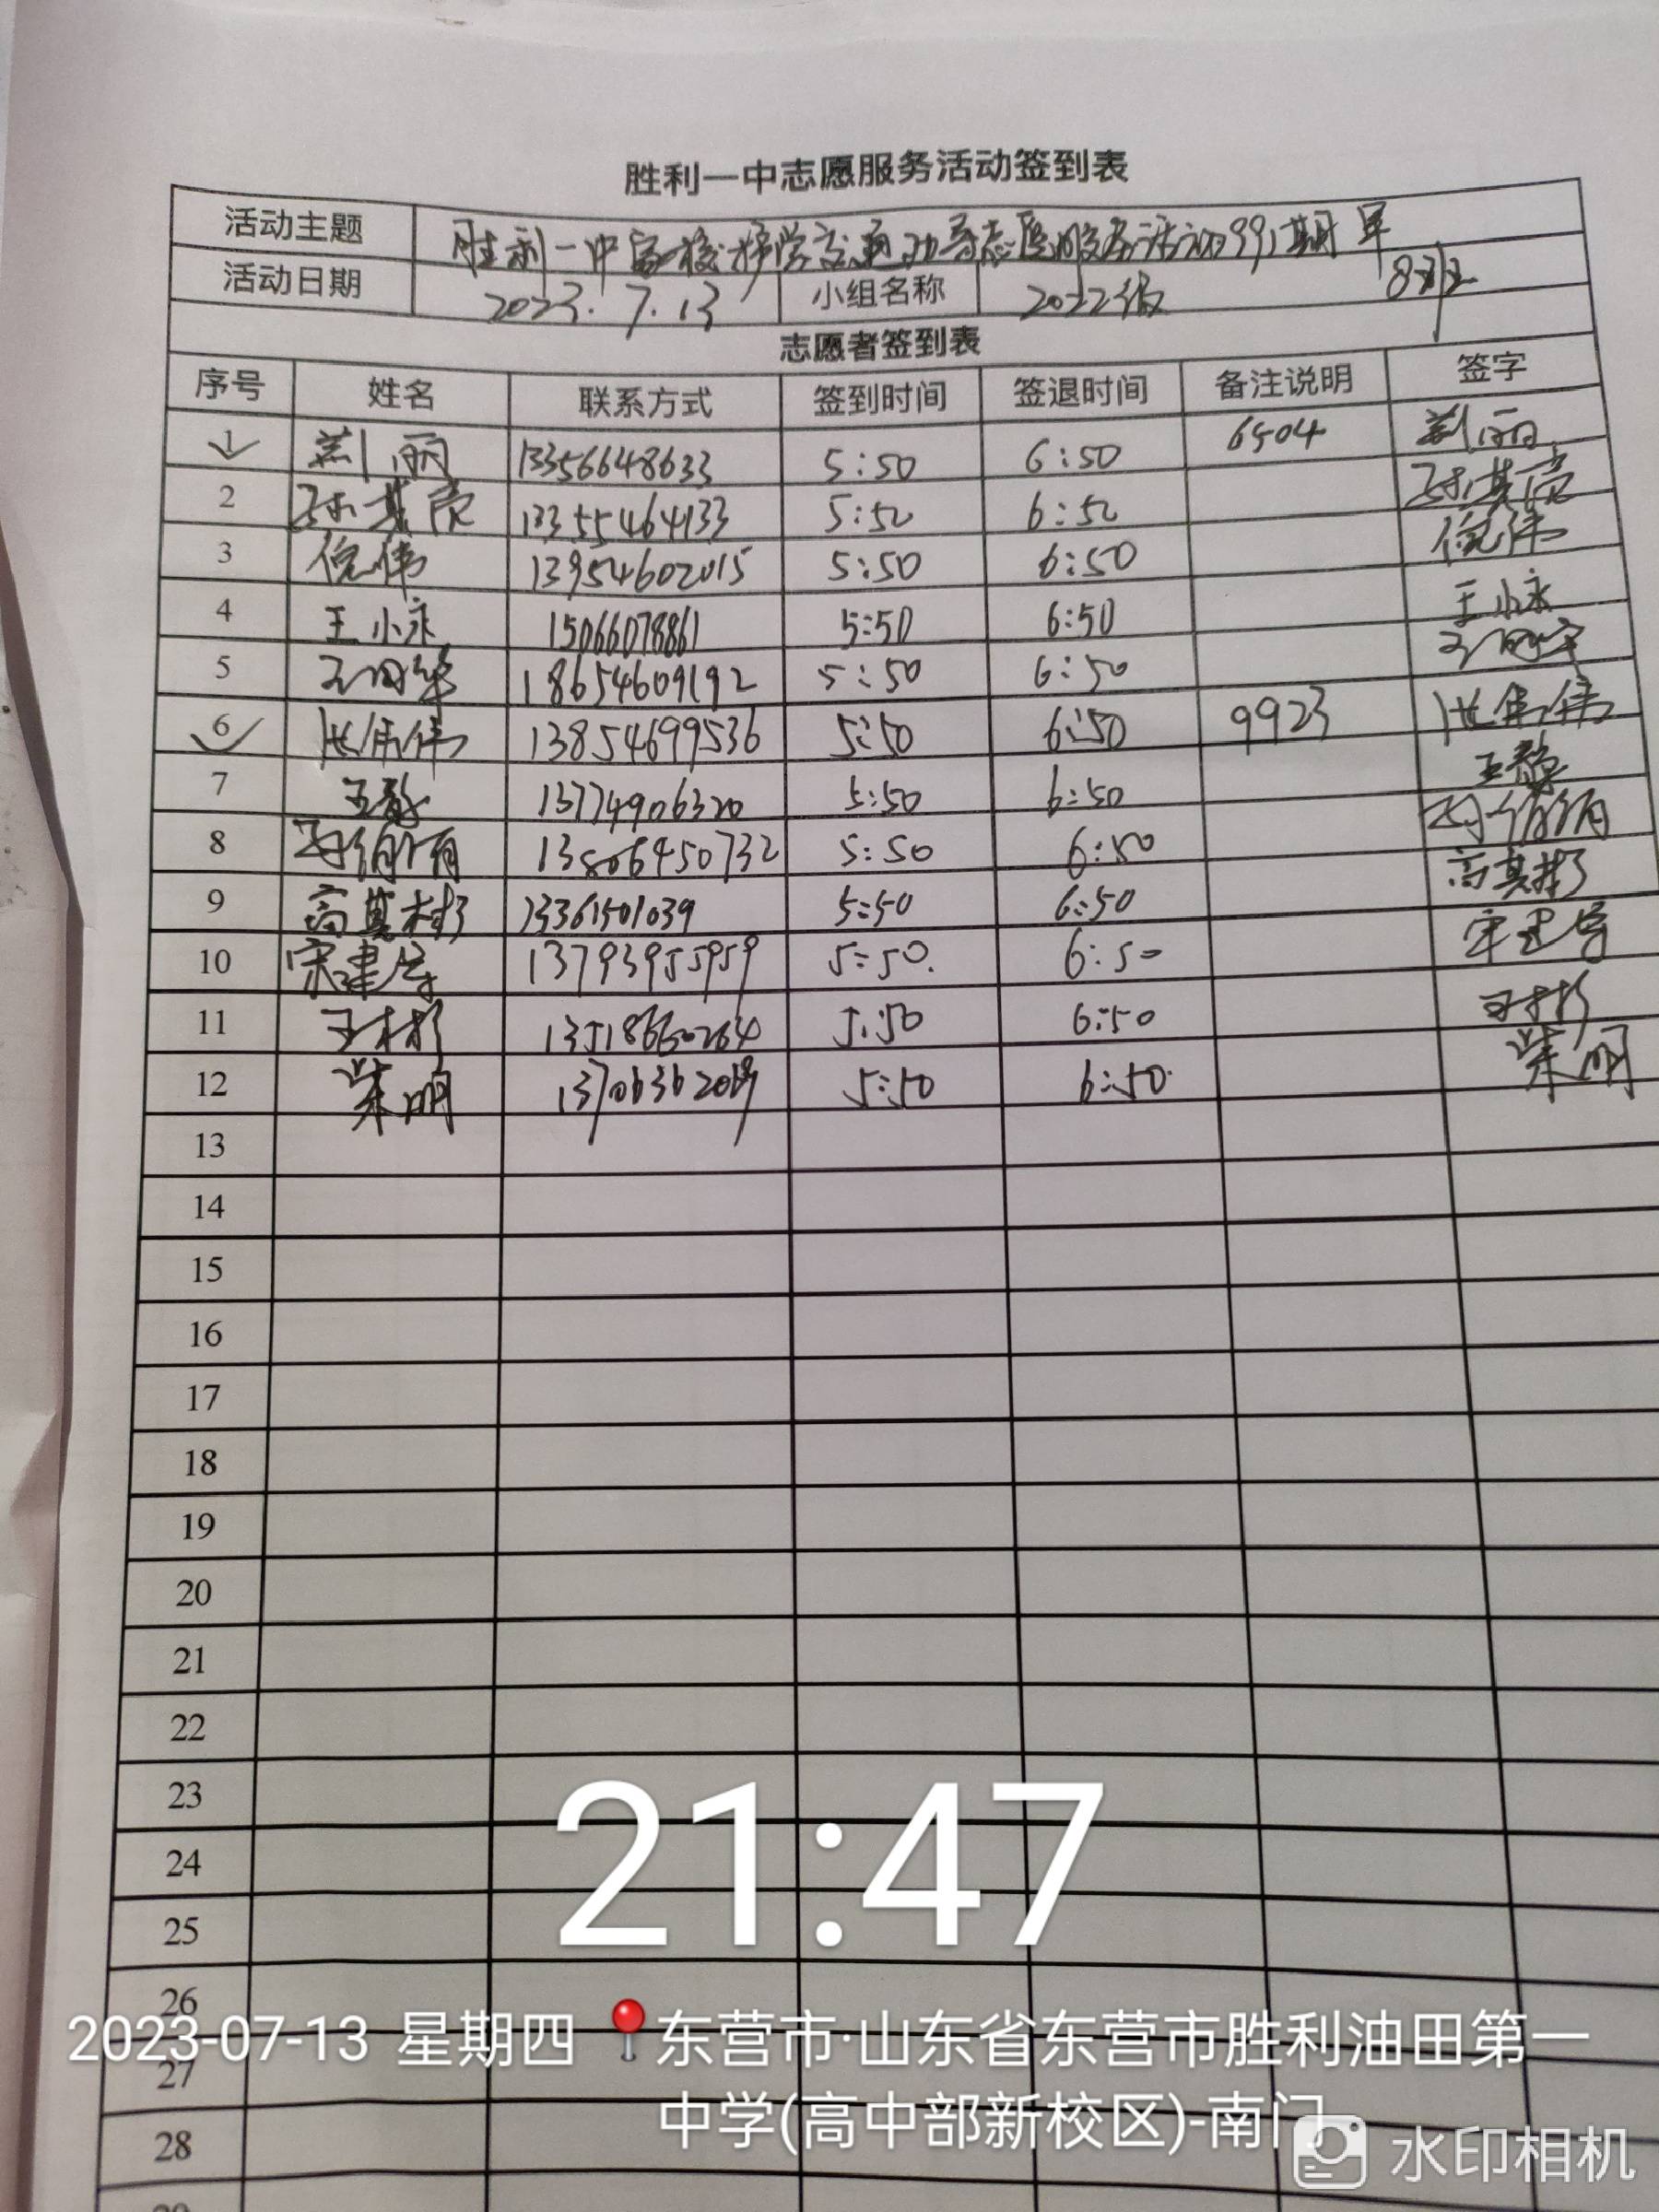 胜利一中志愿服务活动签到表
活动主题 胜利一中家校护学交通劝导志愿服务活动 991期 早
活动日期 2023.7.13 小组名称 2022级 8班
志愿者签到表
序号 姓名 联系方式 签到时间 签退时间 备注说明 签字
1 荆丽 13356648633 5:50 6:50 6504 荆丽
2 5:50 6:50
3 倪伟 13954602015 5:50 6:50 倪伟
4 王小永 15066078861 5:50 6:50 王小永
5 18654609192 5:50 6:50
6 13854699536 5:50 6:50 9923
7 王静 13774906320 5:50 6:50 王静
8 13506450732 5:50 6:50
9 高其彬 13361501039 5:50 6:50 高其彬
10 宋建 13793955959 5:50. 6:50 宋建
11 王彬 5:50 6:50 王彬
12 柴明 5:50 6:50. 柴明
13
14
15
16
17
18
19
20
21
22
23
24
25
26
27
28
29
21:47
2023-07-13 星期四 东营市·山东省东营市胜利油田第一
中学(高中部新校区)-南门
水印相机